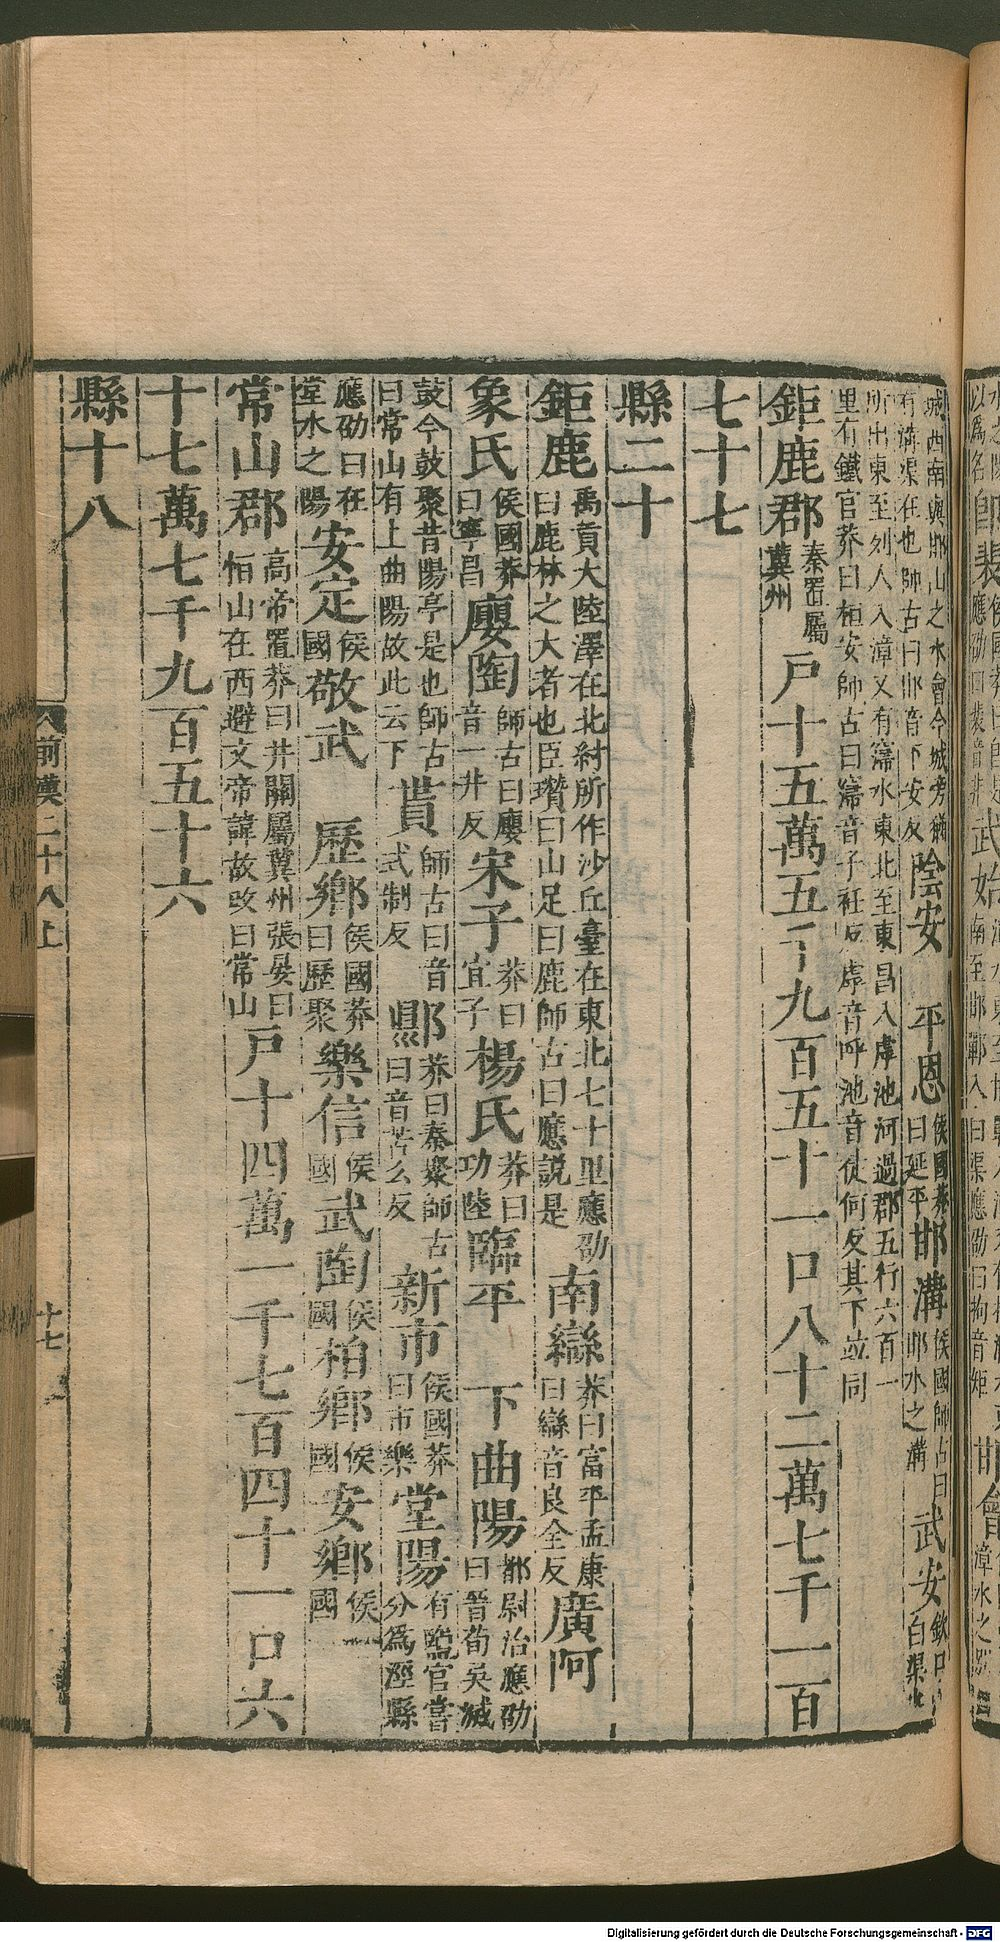 城西南與邯山之水會今城旁猶
有溝渠在也師古曰邯音下安反
陰安
平恩
侯國莽
曰延平
邯溝
侯國師古曰
邯水之溝
武安
欽口
白渠水
所出東至列人入漳又有寖水東北至東昌入虖池河過郡五行六百一
里有鐵官莽曰桓安師古曰寖音子衽反虖音呼池音徒何反其下竝同
鉅鹿郡
秦置屬
冀州
戶十五萬五千九百五十一口八十二萬七千一百
七十七
縣二十
鉅鹿
禹貢大陸澤在北紂所作沙丘臺在東北七十里應劭
曰鹿林之大者也臣瓚曰山足曰鹿師古曰應說是
南䜌
莽曰富平孟康
曰䜌音良全反
廣阿
象氏
侯國莽
曰寧昌
廮陶
師古曰廮
音一井反
宋子
莽曰
宜子
楊氏
莽曰
功陸
臨平
下曲陽
都尉治應劭
曰晉荀吳滅
鼓今鼓聚昔陽亭是也師古
曰常山有上曲陽故此云下
貰
師古曰音
式制反
鄡
莽曰秦聚師古
曰音苦么反
新市
侯國莽
曰市樂
堂陽
有鹽官嘗
分為涇縣
應劭曰在
堂水之陽
安定
侯
國
敬武
歷鄉
侯國莽
曰歷聚
樂信
侯
國
武陶
侯
國
柏鄉
侯
國
安鄉
侯
國
常山郡
高帝置莽曰井關屬冀州張晏曰
恒山在西避文帝諱故改曰常山
戶十四萬一千七百四十一口六
十七萬七千九百五十六
縣十八
前漢二十八上
十七
武始
Digitalisierung gefördert durch die Deutsche Forschungsgemeinschaft - DFG